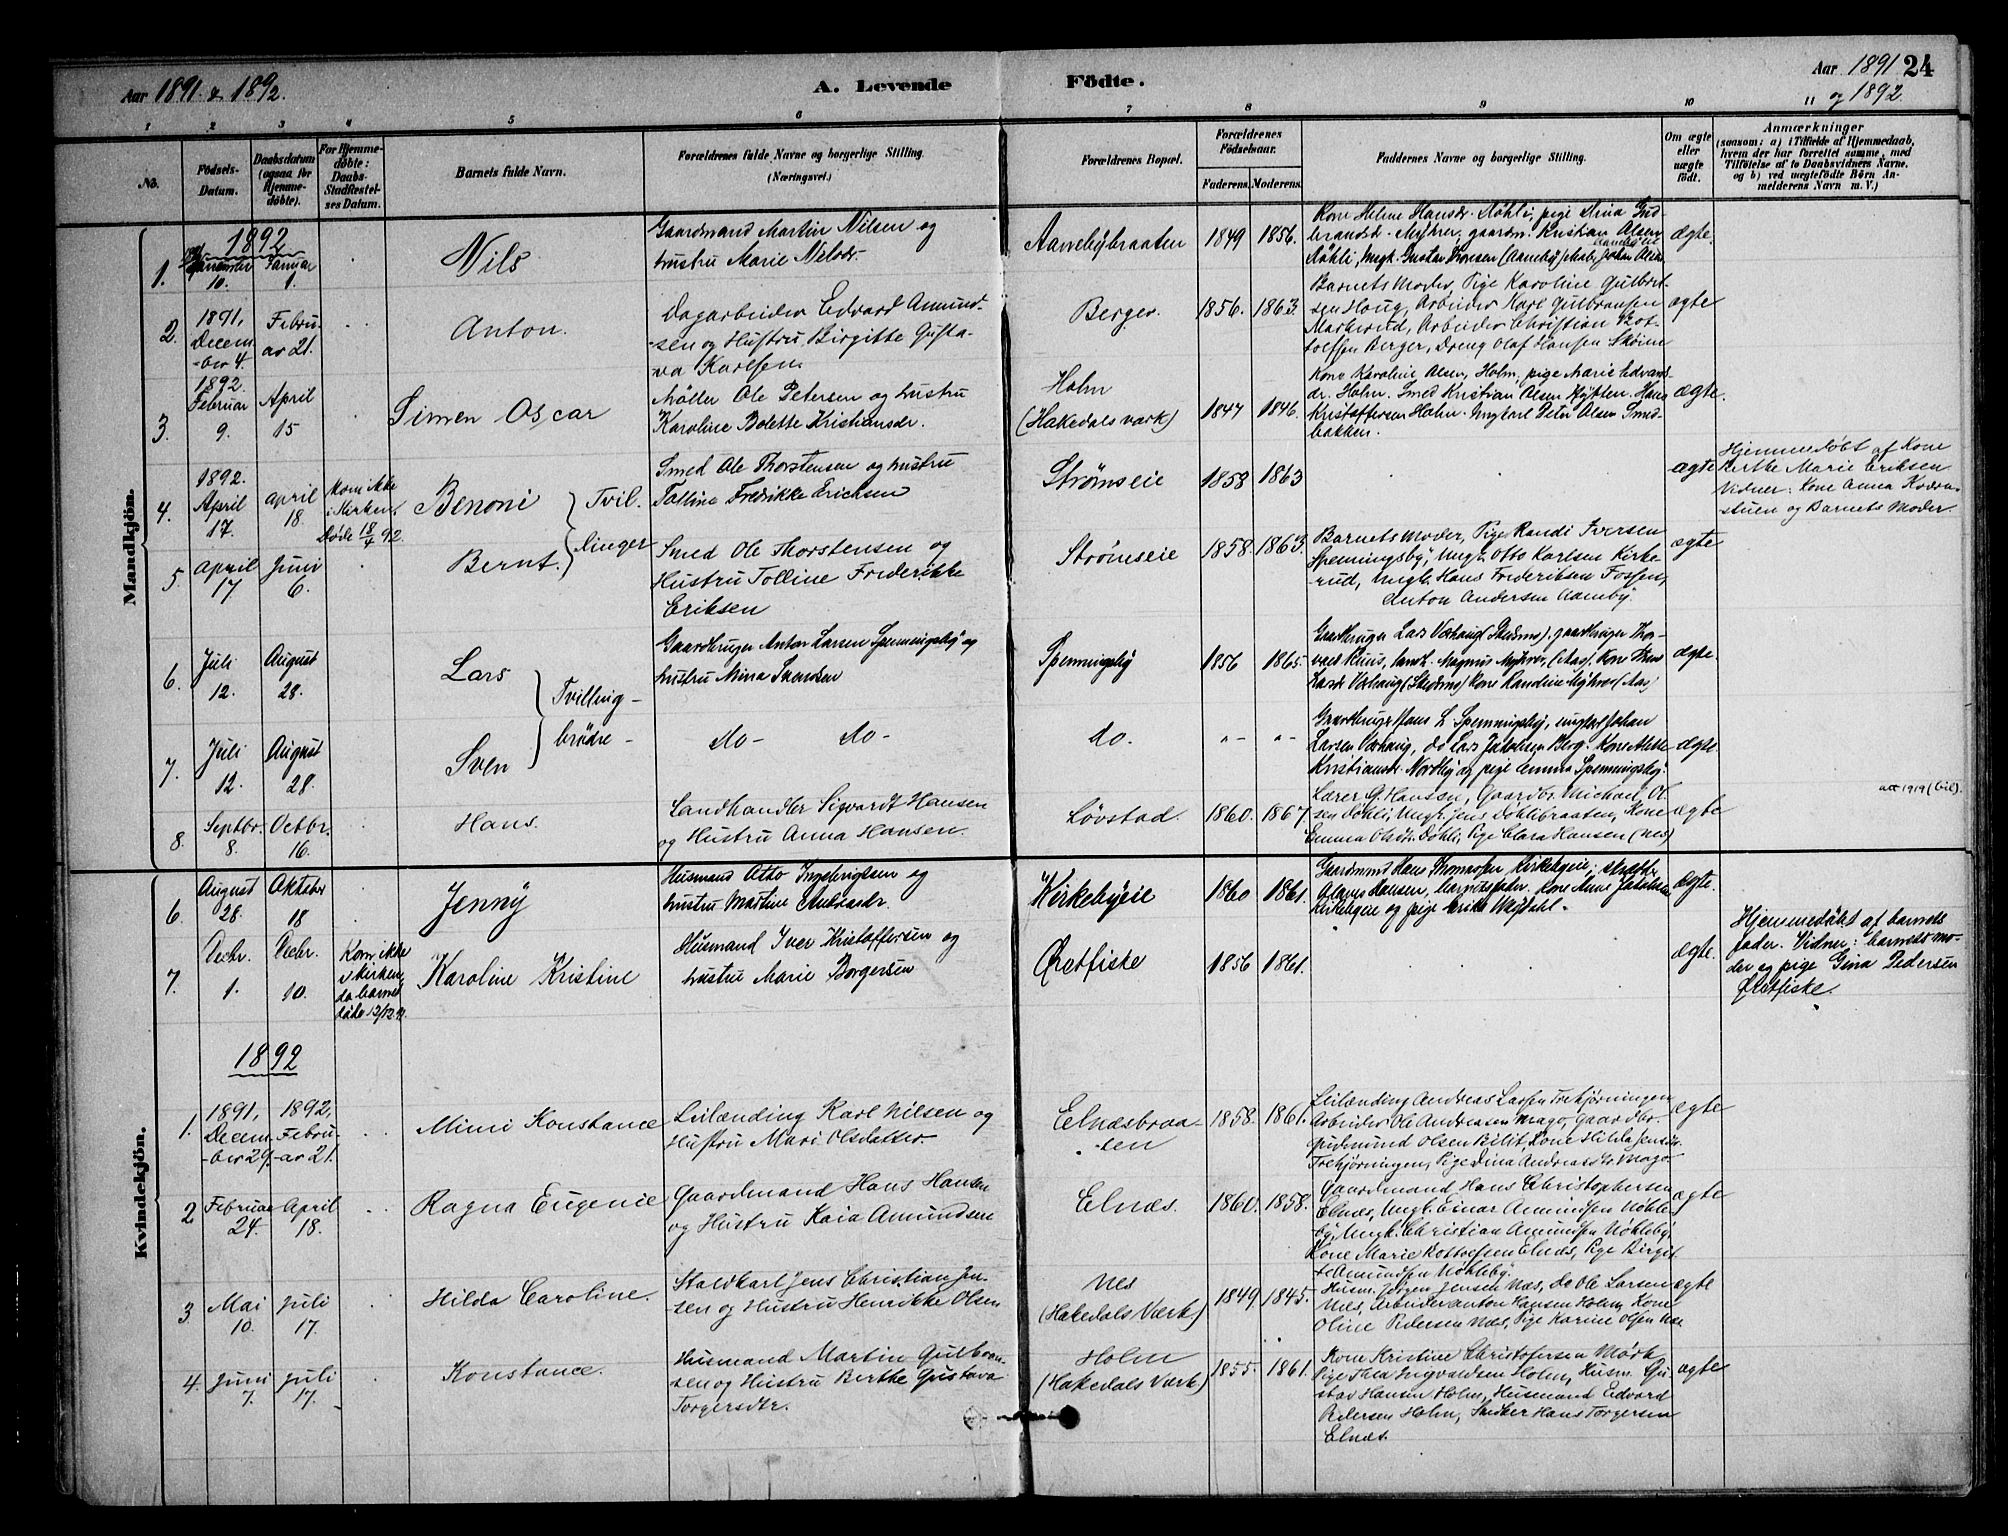 Aar 1891 & 1892.
A. Levende Födte.
Aar 1891 og 1892.
24
1 2 3 4 5 6 7 8 9 10 11
No.
Födsels-Datum.
Daabsdatum (ogsaa for Hjemmedöbte).
For Hjemmedöbte: Daabs-Stadfestelses Datum.
Barnets fulde Navn.
Forældrenes fulde Navne og borgerlige Stilling. (Næringsvei.)
Forældrenes Bopæl.
Forældrenes Födselsaar.
Faderens. Moderens.
Faddernes Navne og borgerlige Stilling.
Om ægte eller uægte födt.
Anmærkninger (saasom: a) i Tilfælde af Hjemmedaab, hvem der har forrettet samme, med Tilföielse af to Daabsvidners Navne, og b) ved uægtefödte Börn Anmelderens Navn m. V.)
Mandkjön.
1892
1. 10. Januar 1. Nils
Gaardmand Martin Nilsen og
hustru Marie Nilsdr.
Aanebybraaten 1849 1856.
Kone Helene Hansdr. Døhli, pige Dina Gud-
brandsd. Myhrer, gaardm. Kristian Olsen
Døhli, Ungk. Gustav Thoresen (Aaneby)
ægte.
2. 1891, Decem-ber 4. Febru-ar 21. Anton.
Dagarbeider Edvard Amund-
sen og Hustru Birgitte Gusta-
va Karlsen.
Berger. 1856. 1863.
Barnets Moder, Pige Karoline Gulbrat-
sen Haug, Arbeider Karl Gulbransen
Markerud, Arbeider Christian Rot-
tolfsen Berger, Dreng Olaf Hansen Skøien
ægte
3. 1892. Februar 9. April 15 Simen Oscar
Møller Ole Petersen og hustru
Karoline Bolette Kristiansdr.
Holm (Hakedals værk) 1847 1846.
Kone Karoline Olsen, Holm, pige Marie Edvards-
dr. Holm. Smed Kristian Olsen Hytten. Hans
Kristoffersen Holm. Ungkarl Peter Olsen Smed-
bakken.
ægte.
4. 1892. April 17. april 18. Kom ikke i Kirken. Døde 18/4 92. Benoni
Tvil-linger
Smed Ole Thorstensen og hustru
Tolline Fredrikke Erichsen
Strømseie 1858 1863
ægte
Hjemmedøbt af Kone
Berthe Marie Eriksen
Vidner: Kone Anna Kværn-
stuen og Barnets Moder.
5. april 17 Juni 6. Bernt.
Smed Ole Thorstensen og
Hustru Tolline Frederikke
Eriksen
Strømseie 1858. 1863.
Barnets Moder, Pige Randi Iversen
Spenningsby, Ungk. Otto Karlsen Kirke-
rud, Ungk. Hans Frederiksen Fossen,
Anton Andersen Aaneby.
ægte
6. Juli 12. August 28. Lars
Tvilling-brødre-
Gaardbruger Anton Larsen Spenningsby og
hustru Mina Svendsen
Spenningsby 1856 1865.
Gaardbruger Lars Varhaug (Skedsmo), gaardbruger Thor-
vald Ruus, Magnus Myhrer, (Aas). Kone
Varhaug (Skedsmo) Kone Randine Myhrer (Aas)
ægte.
7. Juli 12. August 28. Sven
do- do-
do. " - " -
Gaardbruger Hans L. Spenningsby, ungkarl Johan
Larsen Varhaug, do Lars Jakobsen Berg. Kone
Kristiansdr. Nordby og pige Emma Spenningsby.
ægte
8. Septbr. 8. Octbr. 16. Hans.
Landhandler Sigvardt Hansen
og Hustru Anna Hansen.
Løvstad. 1860. 1867.
Lærer G. Hanssen, Gaardbr. Michael Ol-
sen Døhli, Ungk. Jens Døhlibraaten, Kone
Emma Olsdtr. Døhli, Pige Clara Hansen (Nes)
ægte
att 1919
Kvindekjön.
6. August 28. Oktober 18 Jenny
Husmand Otto Ingebrigtsen og
hustru Martine Andreasdr.
Kirkebyeie 1860 1861.
Gaardmand Hans Thomasen Kirkebyeie;
Hansen, barnets fader. Kone Anne Jakobsen
Kirkebyeie og pige
ægte.
7. Decbr. 1. Decbr. 10. Kom ikke i Kirken, da barnet døde 12/12.91. Karoline Kristine
Husmand Iver Kristoffersen og
hustru Marie Borgersen
Øretfiske 1856 1861.
ægte.
Hjemmedøbt af barnets
fader. Vidner: barnets mo-
der og pige Gina Pedersen
Øretfiske.
1892
1. 1891, Decem-ber 29. 1892, Febru-ar 21. Mimi Konstance
Leilænding Karl Nilsen og
Hustru Mari Olsdatter
Elnæsbraa-ten 1858. 1861.
Leilænding Andreas Larsen Trehjørningen
Arbeider Ole Andreasen Mago, Gaardbr.
Gudmund Olsen Kone Hilda Jensdr.
Trehjørningen, Pige Dina Andreasdtr. Mago
ægte
2 Februar 24. April 18. Ragna Eugenie
Gaardmand Hans Hansen
og Hustru Kaia Amundsen
Elnæs. 1860. 1858.
Gaardmand Hans Christophersen
Elnæs, Ungk. Einar Amundsen Nøkle-
by, Ungk. Christian Amundsen Nøkleby,
Kone Marie Rottolfsen Elnæs, Pige Birgit-
te Amundsen Nøkleby.
ægte
3 Mai 10. Juli 17. Hilda Caroline.
Staldkarl Jens Christian Jen-
sen og Hustru Henrikke Olsen
Nes (Hakedals Værk) 1849. 1845.
Husm. Jørgen Jensen Næs, do Ole Larsen
Næs, Arbeider Anton Hansen Holm, Kone
Oline Pedersen Næs, Pige Karine Olsen Næs
ægte
4. Juni 7. Juli 17. Konstance.
Husmand Martin Gulbran-
sen og Hustru Berthe Gustava
Torgersdtr.
Holm (Hakedals Værk) 1855. 1861.
Kone Kristine Christofersen Mørk
Pige Thea Ingvaldsen Holm, Husm. Gu-
stav Hansen Holm, Husmand Edvard
Pedersen Holm, Snedker Hans Torgersen
Elnæs.
ægte